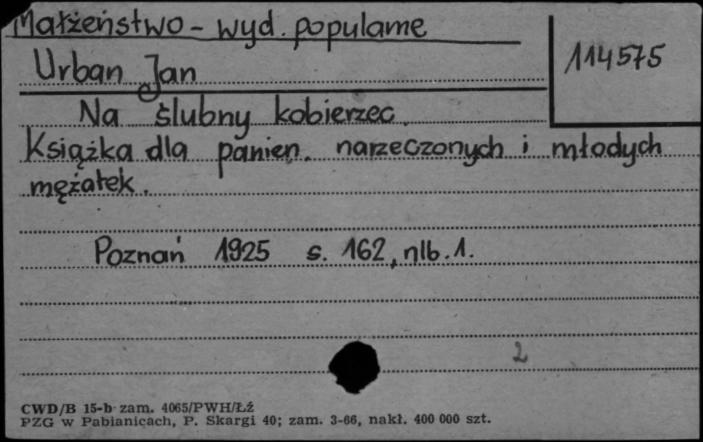 Małżeństwo - wyd. popularne
114575
Urban Jan
Na ślubny kobierzec.
Książka dla panien. narzeczonych i młodych
mężatek.
Poznań 1925 s. 162, nlb. 1.
2
CWD/B 15-b zam. 4065/PWH/ŁŹ
PZG w Pabianicach, P. Skargi 40; zam. 3-66, nakł. 400 000 szt.